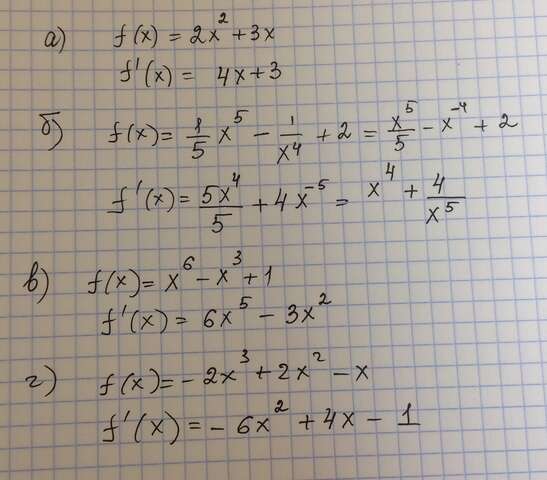 а) f(x) = 2x² + 3x
f'(x) = 4x + 3
б) f(x) = 1/5 x⁵ − 1/x⁴ + 2 = x⁵/5 − x⁻⁴ + 2
f'(x) = 5x⁴/5 + 4x⁻⁵ = x⁴ + 4/x⁵
в) f(x) = x⁶ − x³ + 1
f'(x) = 6x⁵ − 3x²
г) f(x) = − 2x³ + 2x² − x
f'(x) = − 6x² + 4x − 1